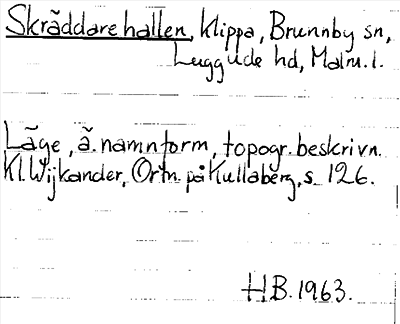 Skräddarehallen, Klippa, Brunnby sn,
Luggude hd, Malm. l.
Läge, ä. namnform, topogr. beskrivn.
Kl. Wijkander, Ortn. på Kullaberg, s. 126.
HB. 1963.